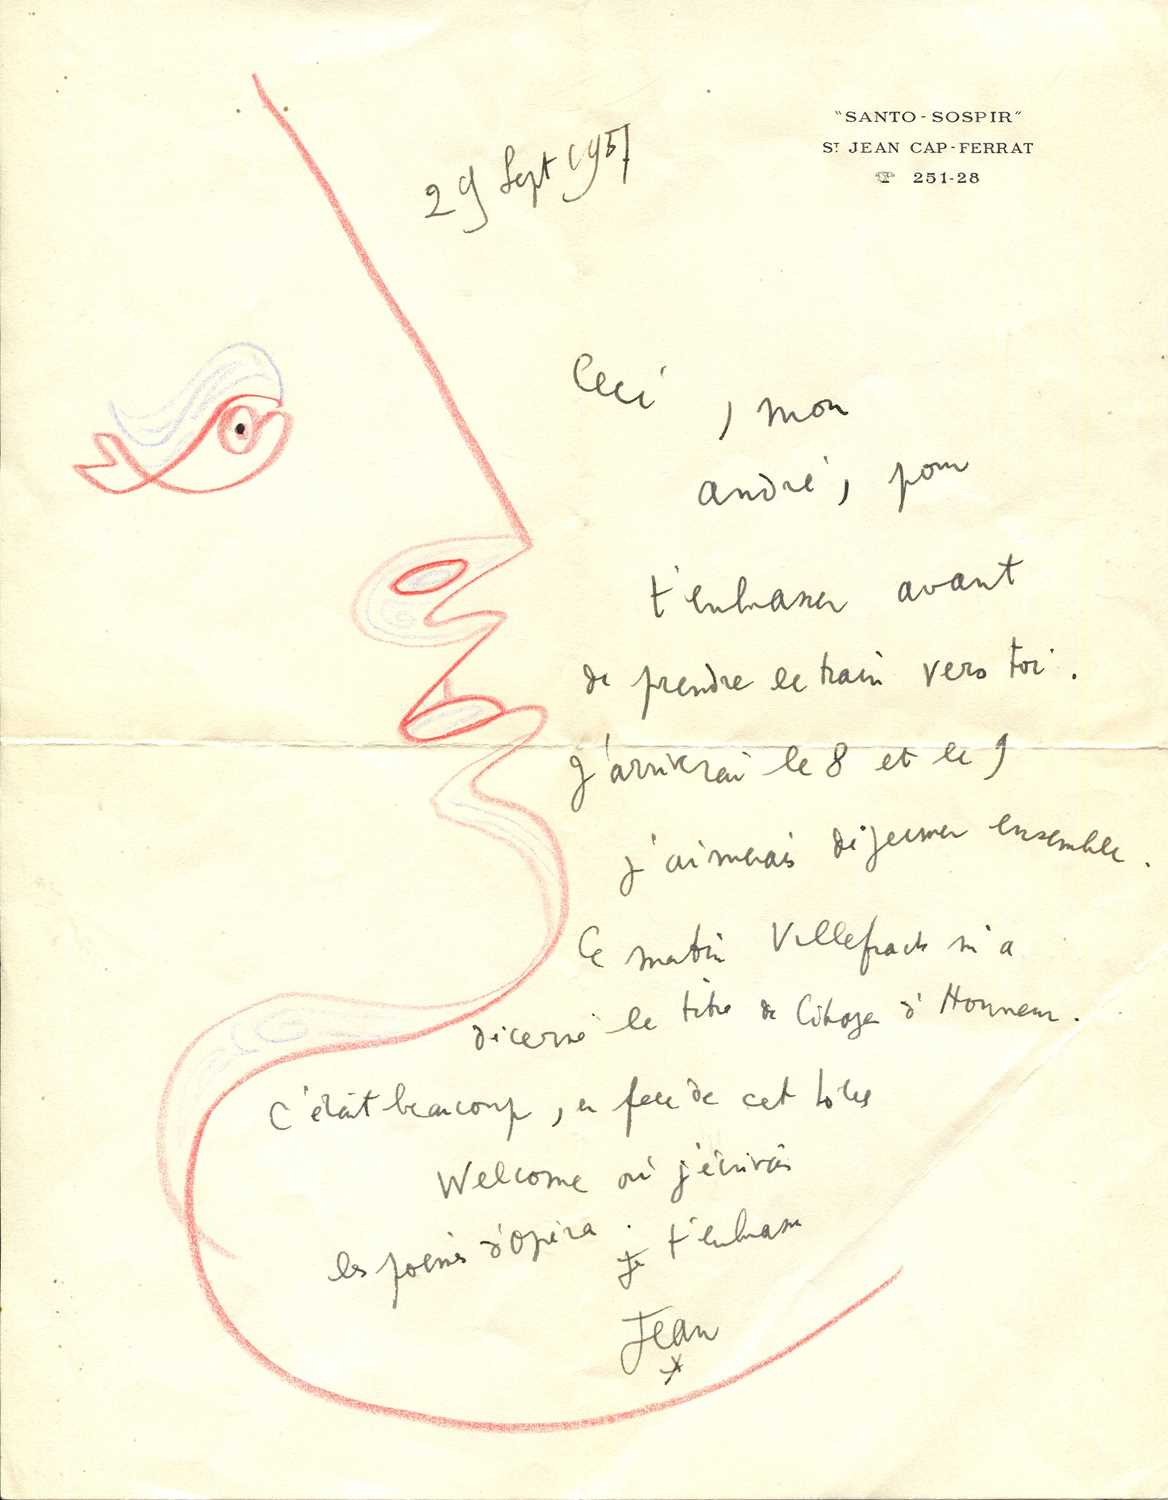 "SANTO-SOSPIR"
ST JEAN CAP-FERRAT
☎ 251-28
29 Sept 1957
Ceci, mon
andré, pour
t'embrasser avant
de prendre le train vers toi.
J'arriverai le 8 et le 9
j'aimerais déjeuner ensemble.
Ce matin Villefranche m'a
décerné le titre de Citoyen d'Honneur.
C'était beaucoup, en face de cet hôtel
Welcome où j'écrivais
les poèmes d'Opéra.
Je t'embrasse
Jean
*